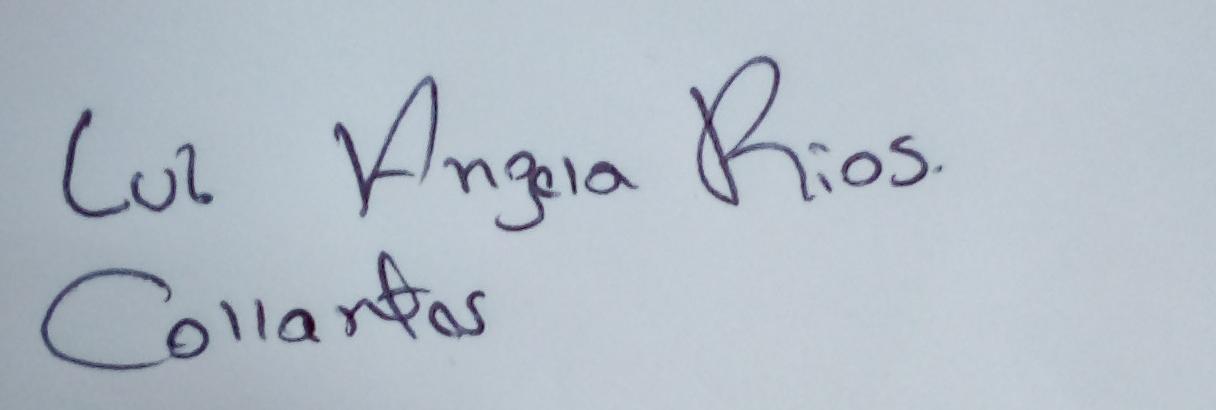 Luz Angela Rios.
Collantes